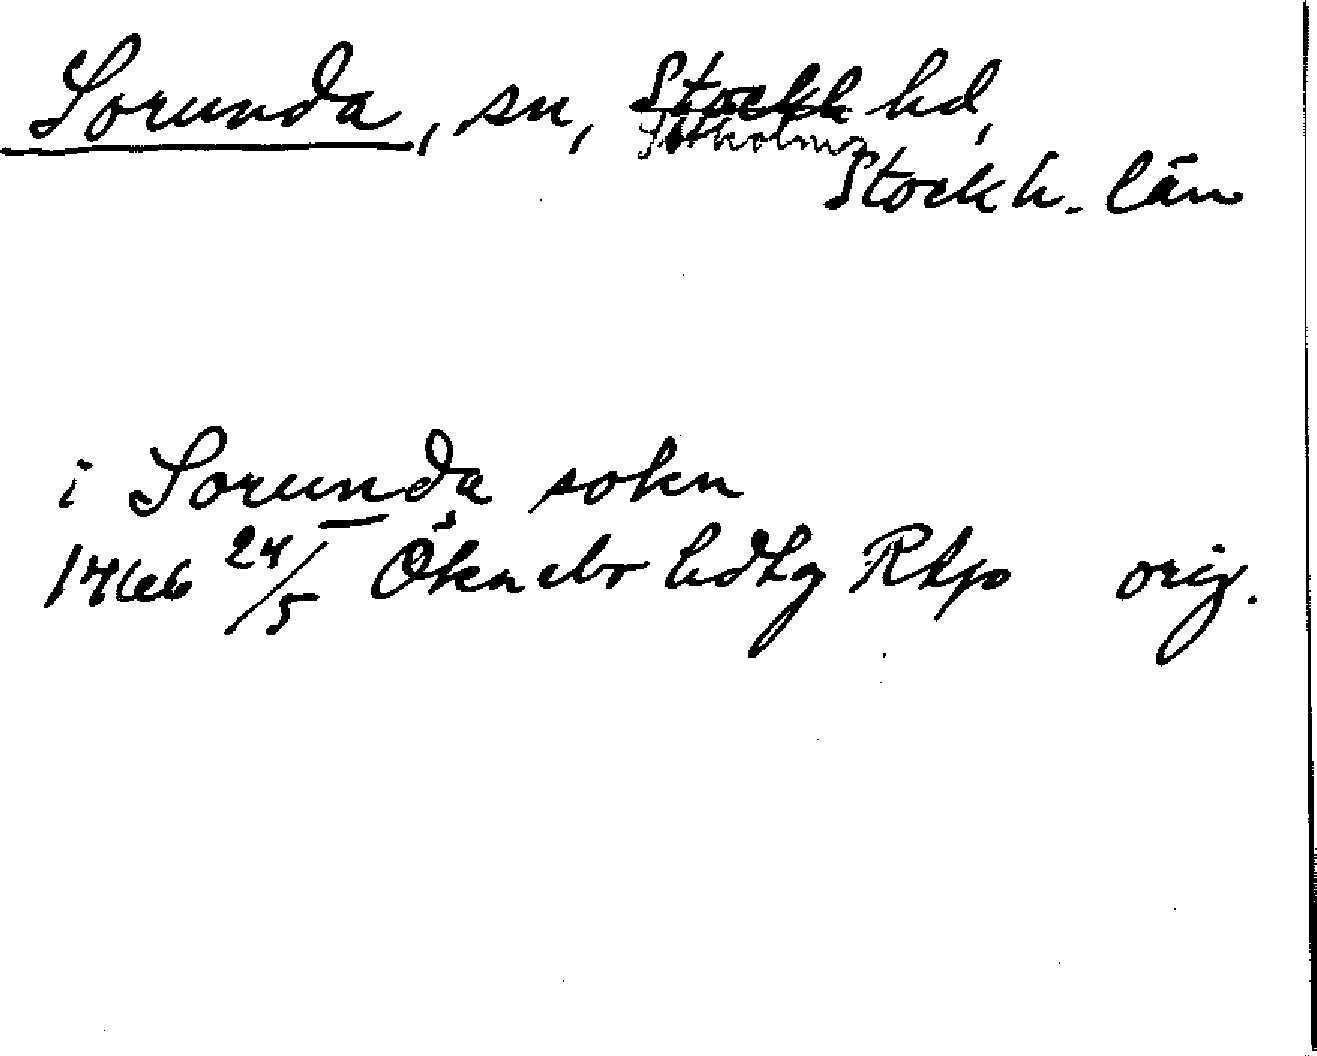 Sorunda, sn, Stockh hd,
Sotholms
Stockh. län
i Sorunda sokn
1466 24/5 Öknebo hdtg Rkp orig.